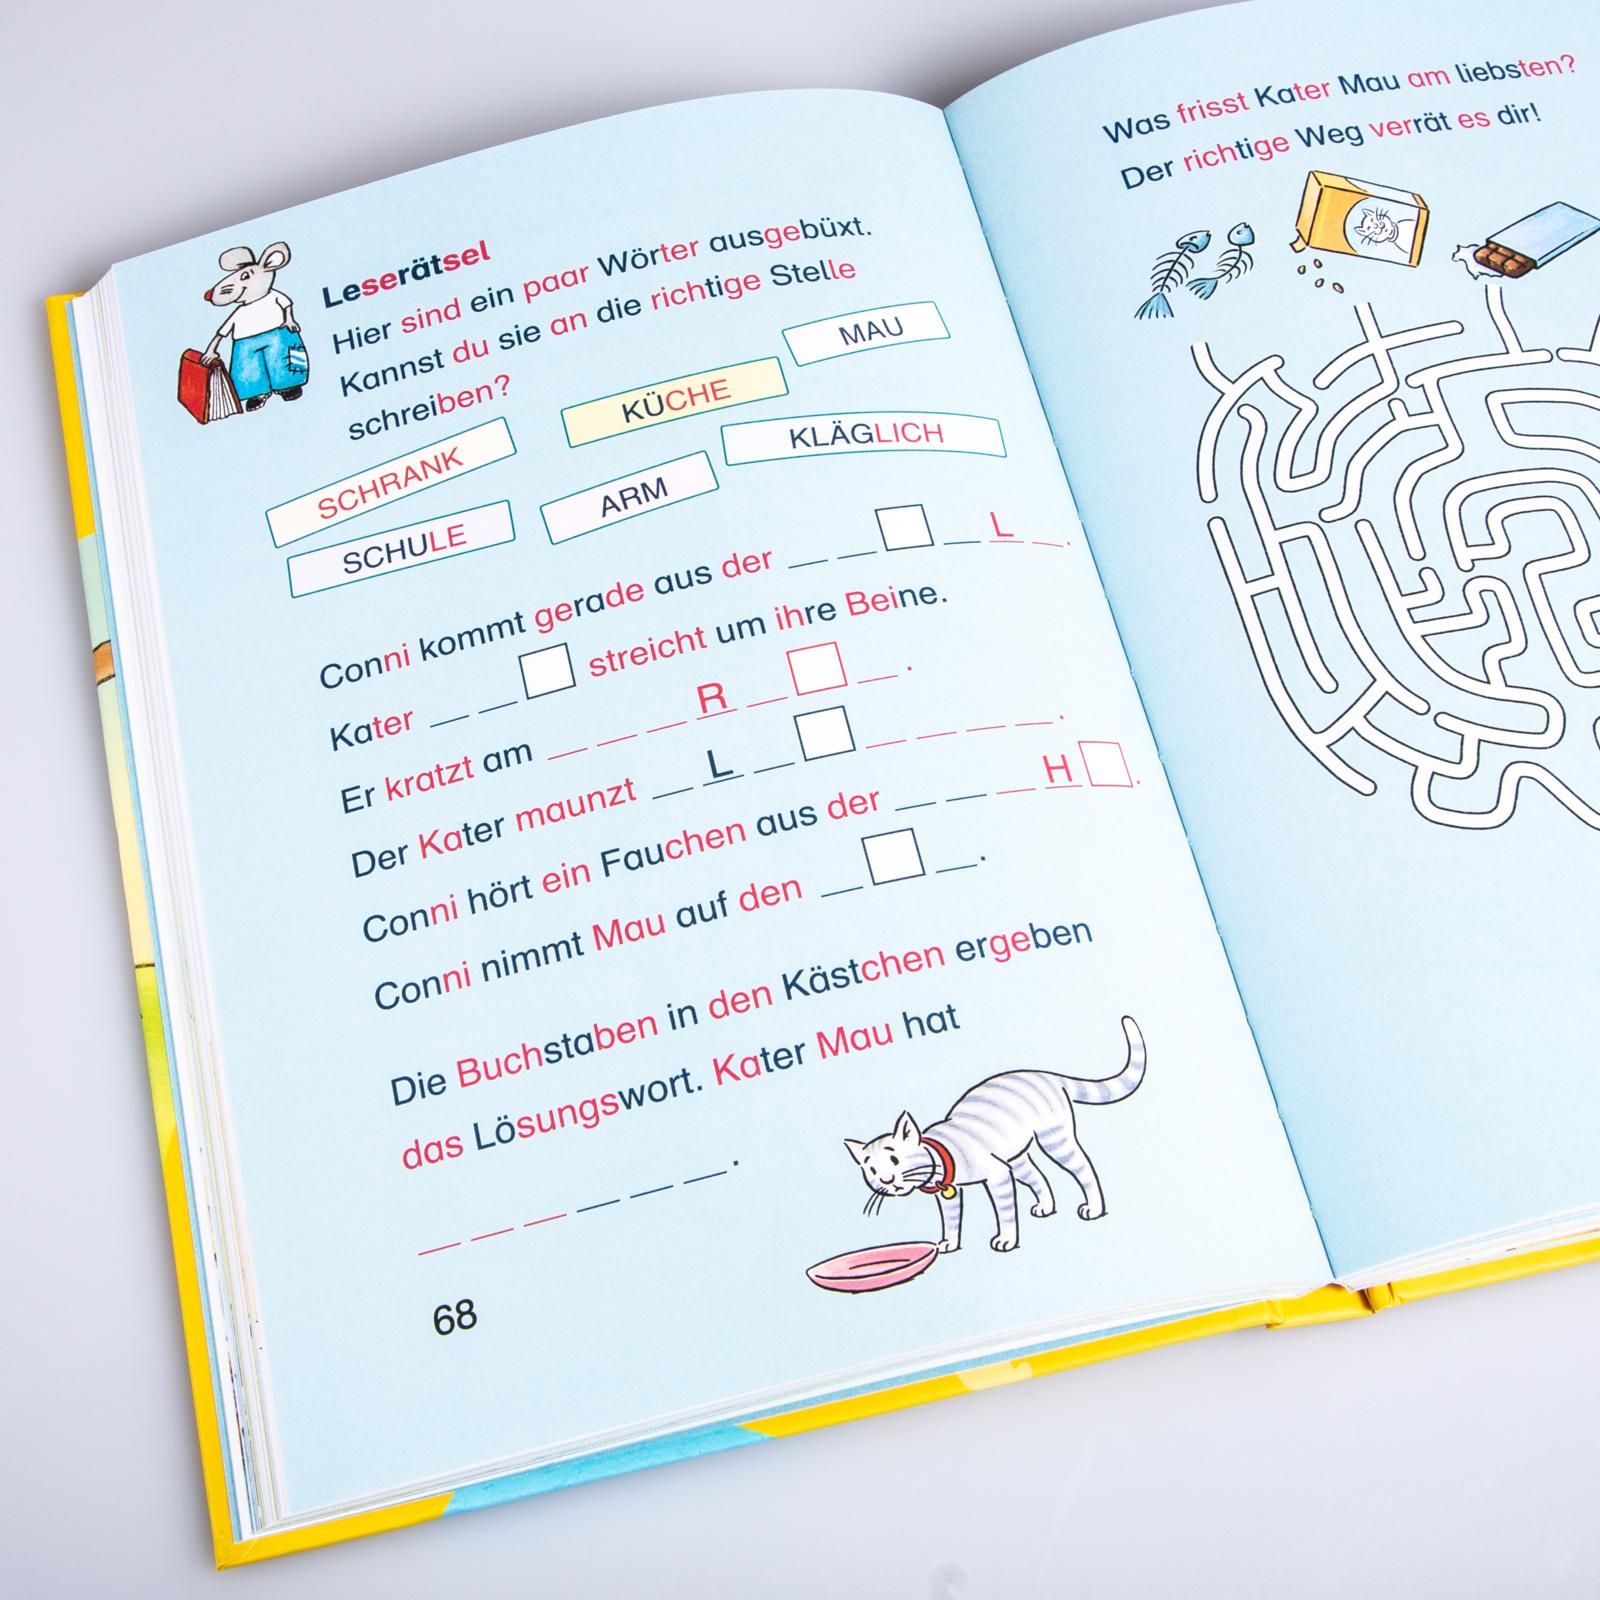 Leserätsel
Hier sind ein paar Wörter ausgebüxt.
Kannst du sie an die richtige Stelle
schreiben?
MAU
KÜCHE
KLÄGLICH
SCHRANK
ARM
SCHULE
Conni kommt gerade aus der _ _ □ _ L _.
Kater _ _ □ streicht um ihre Beine.
Er kratzt am _ _ _ R _ □ _.
Der Kater maunzt _ L _ □ _ _ _ _.
Conni hört ein Fauchen aus der _ _ _ H □.
Conni nimmt Mau auf den _ □ _.
Die Buchstaben in den Kästchen ergeben
das Lösungswort. Kater Mau hat
_ _ _ _ _ _.
68
Was frisst Kater Mau am liebsten?
Der richtige Weg verrät es dir!